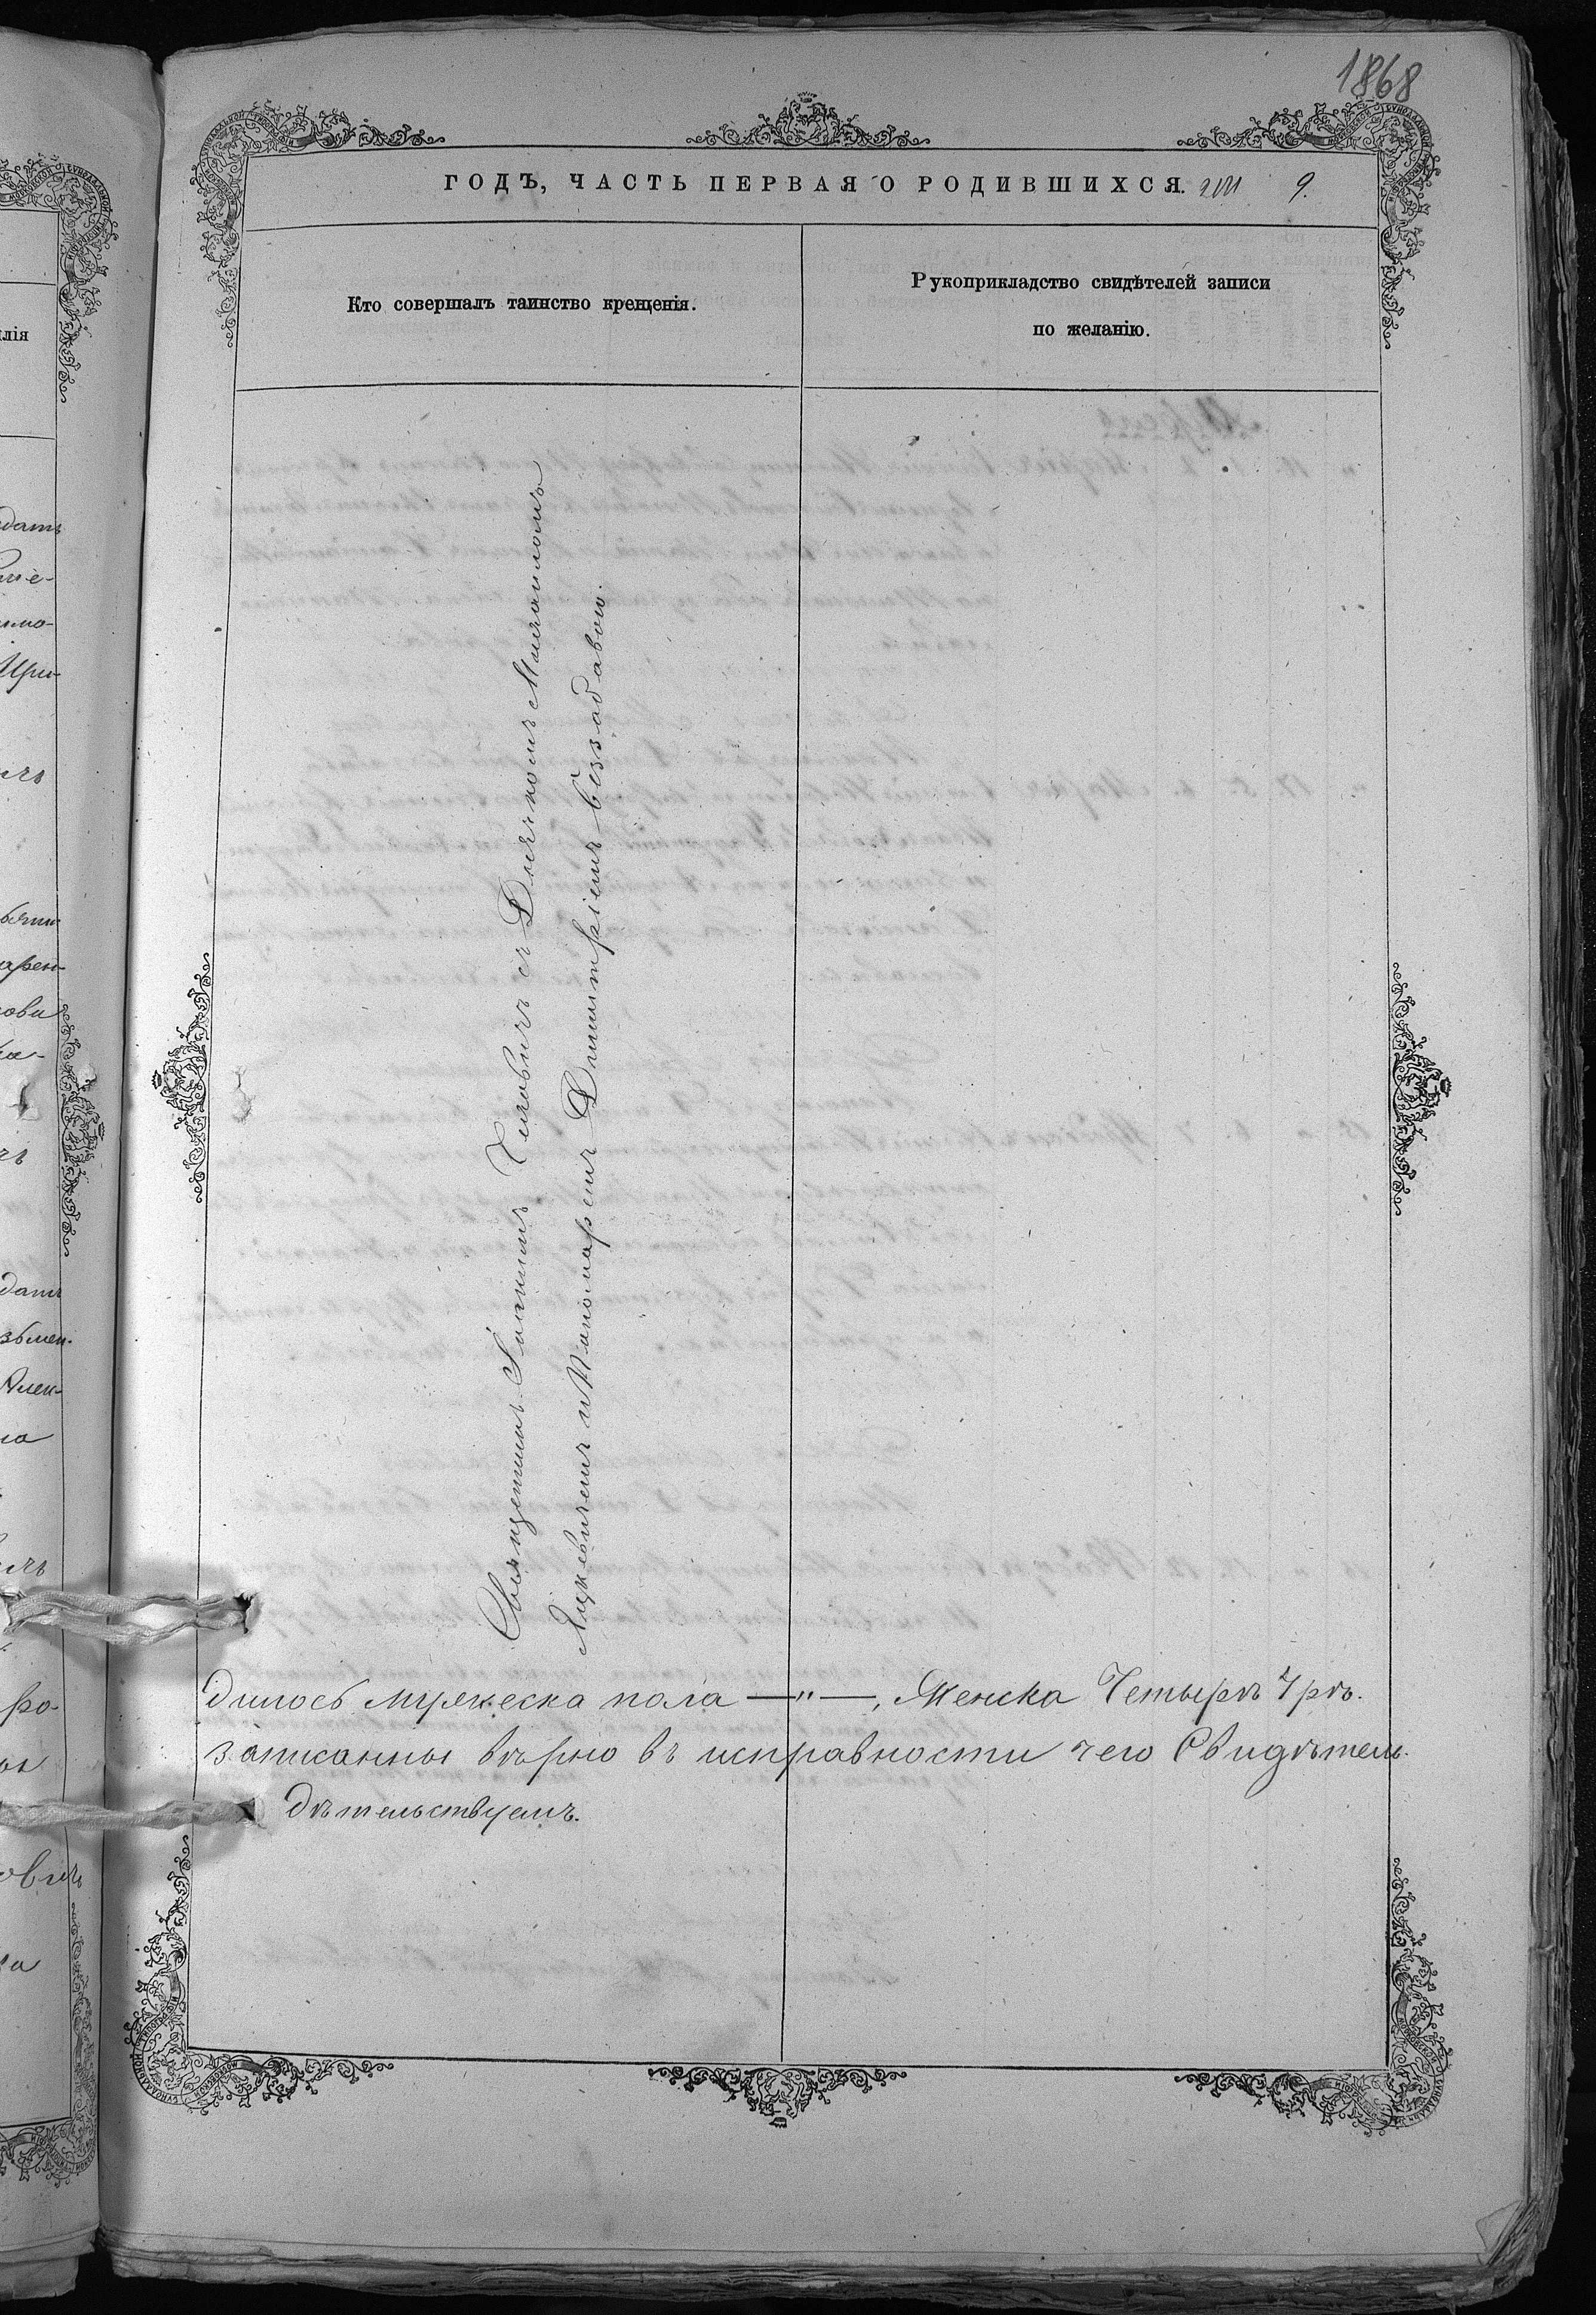 1868
ГОДЪ, ЧАСТЬ ПЕРВАЯ О РОДИВШИХСЯ. 9.
Кто совершалъ таинство крещенія.
Рукоприкладство свидѣтелей записи
по желанію.
Священникъ Іоакимъ съ Дьячкомъ Михаиломъ
Яцкевичемъ и Пономаремъ Димитріемъ Беззабавою.
дилось мужеска пола —"—, Женска Четыре 4ре.
записанны вѣрно въ исправности чего Свидѣтель-
дѣтельствуемъ.
лія
датъ
ро-